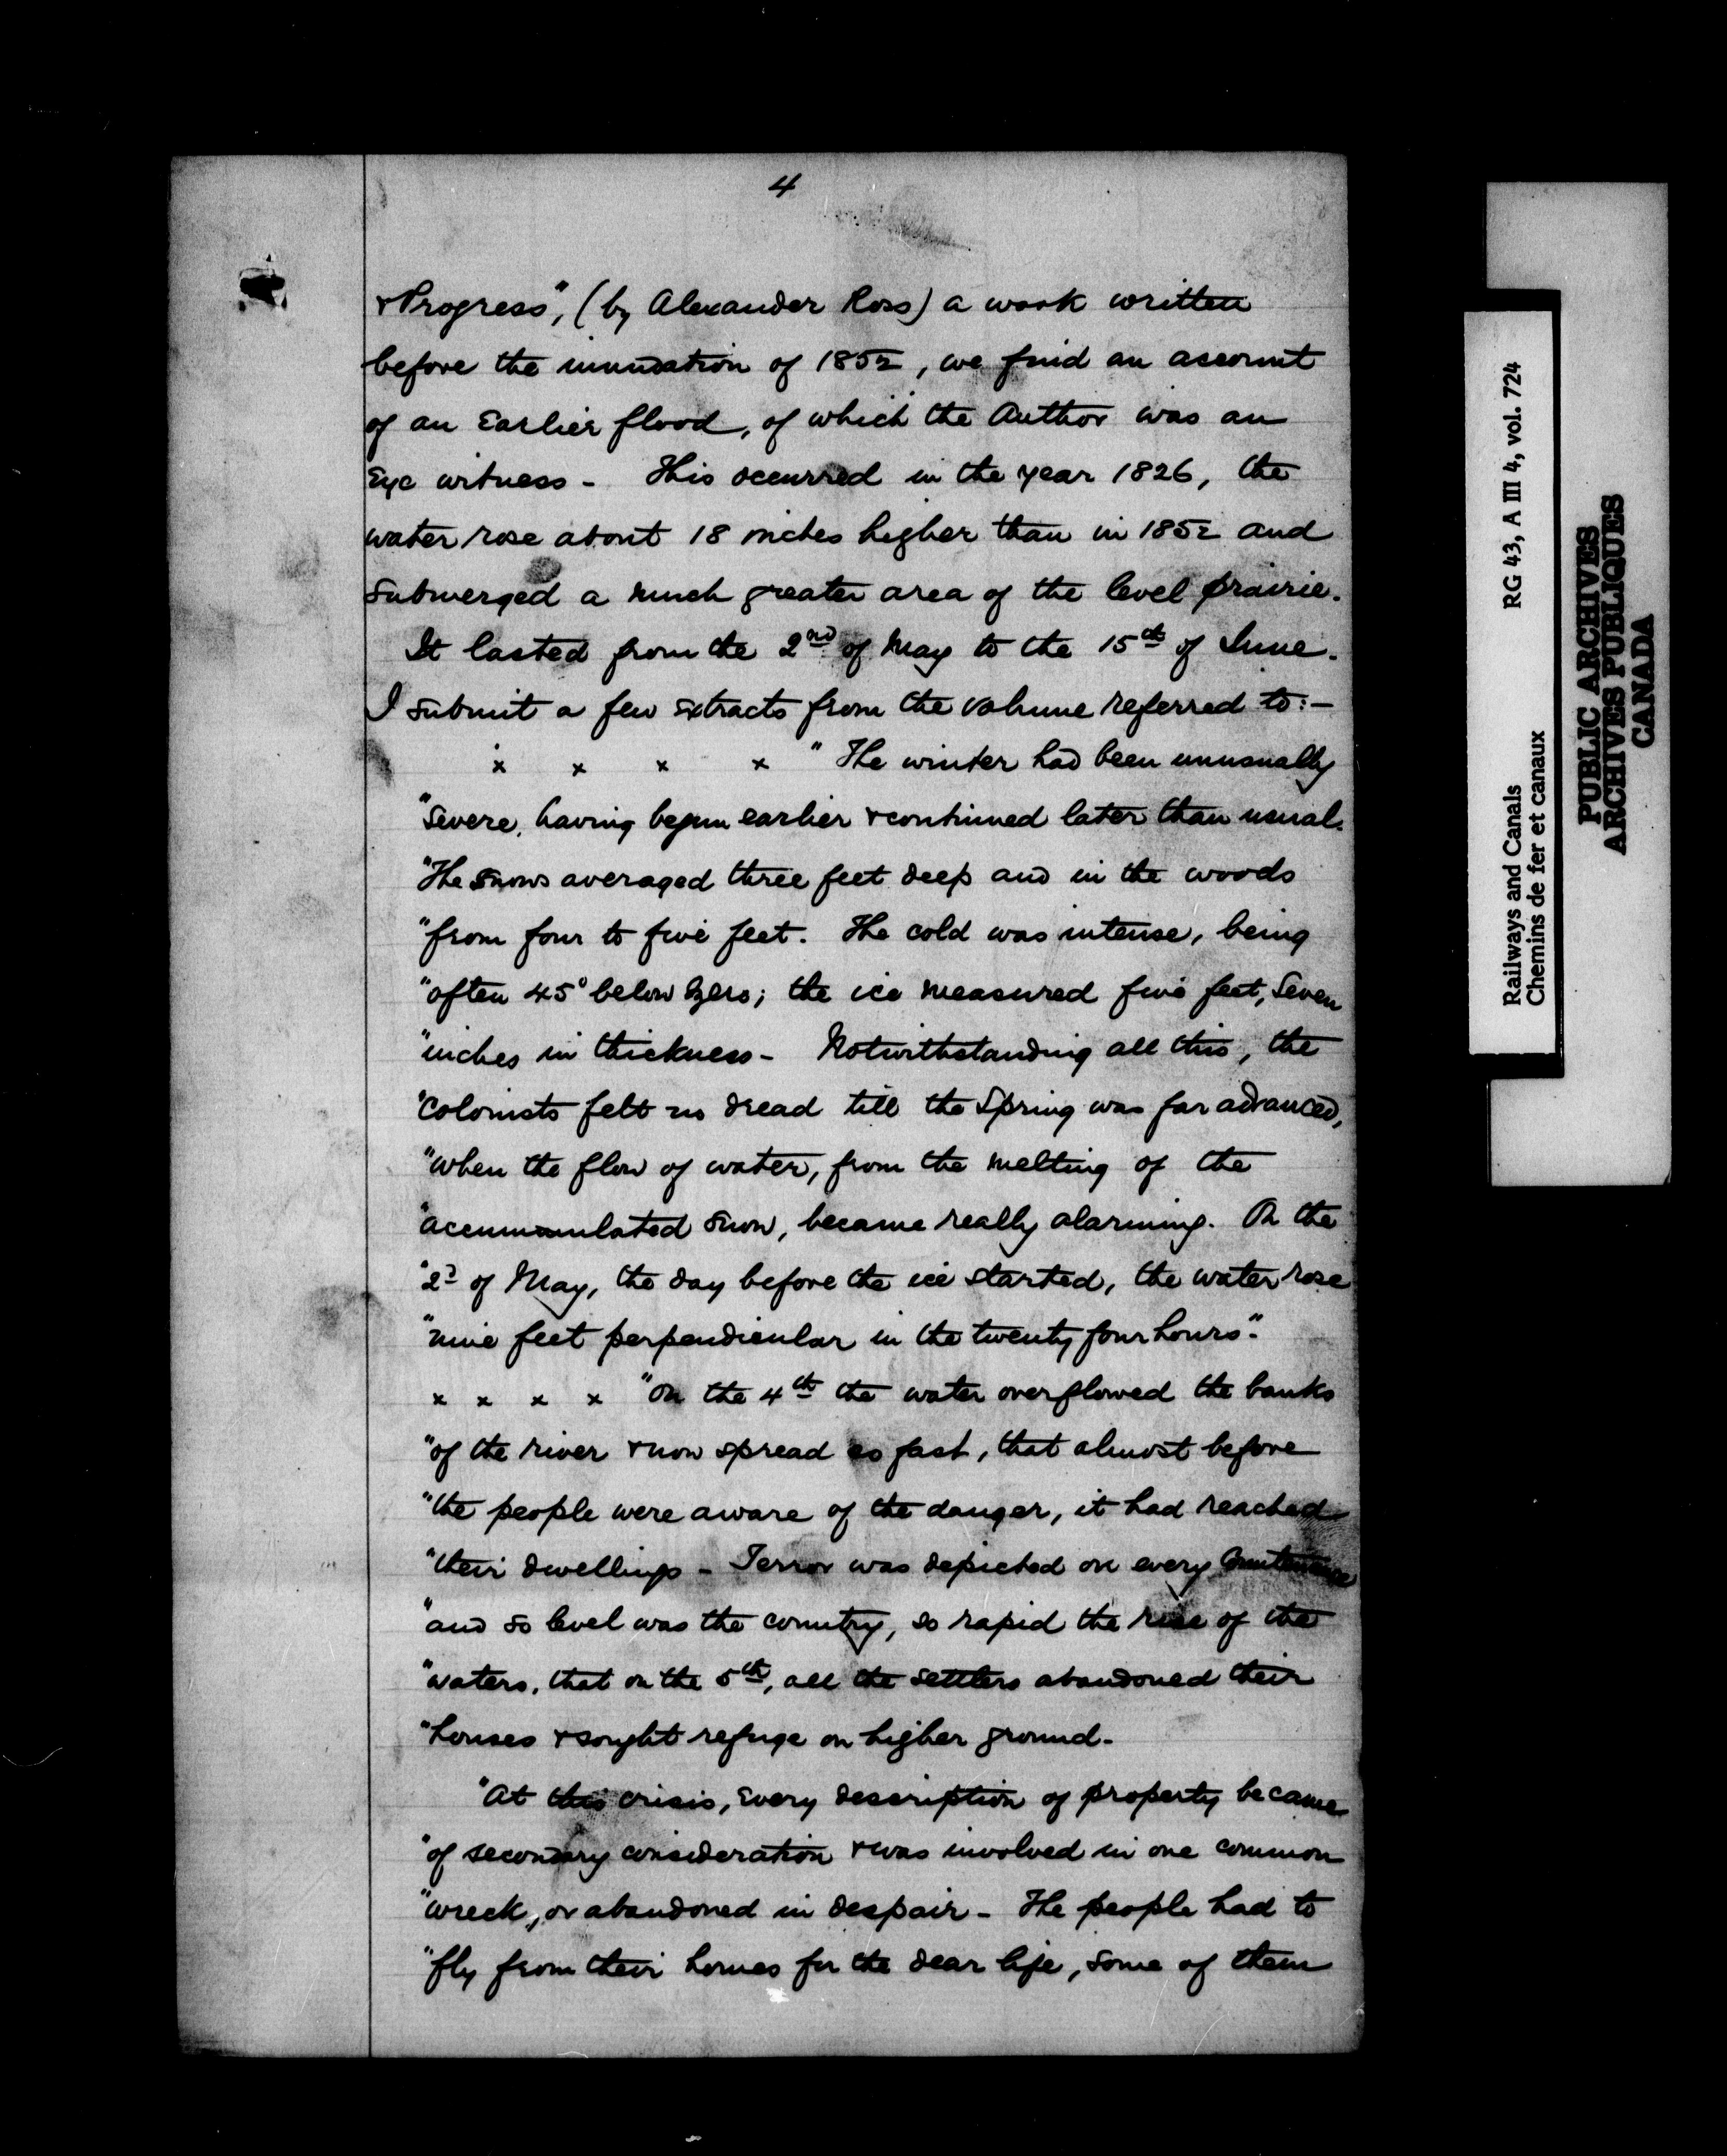 4
& Progress", (by Alexander Ross) a work written
before the inundation of 1852, we find an account
of an Earlier flood, of which the Author was an
Eye witness - This occurred in the year 1826, the
water rose about 18 inches higher than in 1852 and
submerged a much greater area of the level prairie.
It lasted from the 2nd of May to the 15th of June.
I submit a few Extracts from the volume referred to:-
x x x x " The winter had been unusually
"Severe, having begun earlier & continued later than usual.
"The Snows averaged three feet deep and in the woods
"from four to five feet. The cold was intense, being
"often 45° below Zero; the ice measured five feet, Seven
"inches in thickness - Notwithstanding all this, the
"Colonists felt no dread till the Spring was far advanced,
"when the flow of water, from the melting of the
"accummulated Snow, became really alarming. On the
"2d of May, the day before the ice started, the water rose
"nine feet perpendicular in the twenty four hours".
x x x x "On the 4th the water overflowed the banks
"of the river & now spread so fast, that almost before
"the people were aware of the danger, it had reached
"their dwellings - Terror was depicted on every Countenance
"and so level was the country, so rapid the rise of the
"waters, that on the 5th, all the settlers abandoned their
"houses & sought refuge on higher ground -
"At this crisis, Every description of property became
"of secondary consideration & was involved in one common
"wreck, or abandoned in despair - The people had to
"fly from their homes for the dear life, some of them
Railways and Canals
Chemins de fer et canaux
RG 43, A III 4, vol. 724
PUBLIC ARCHIVES
ARCHIVES PUBLIQUES
CANADA